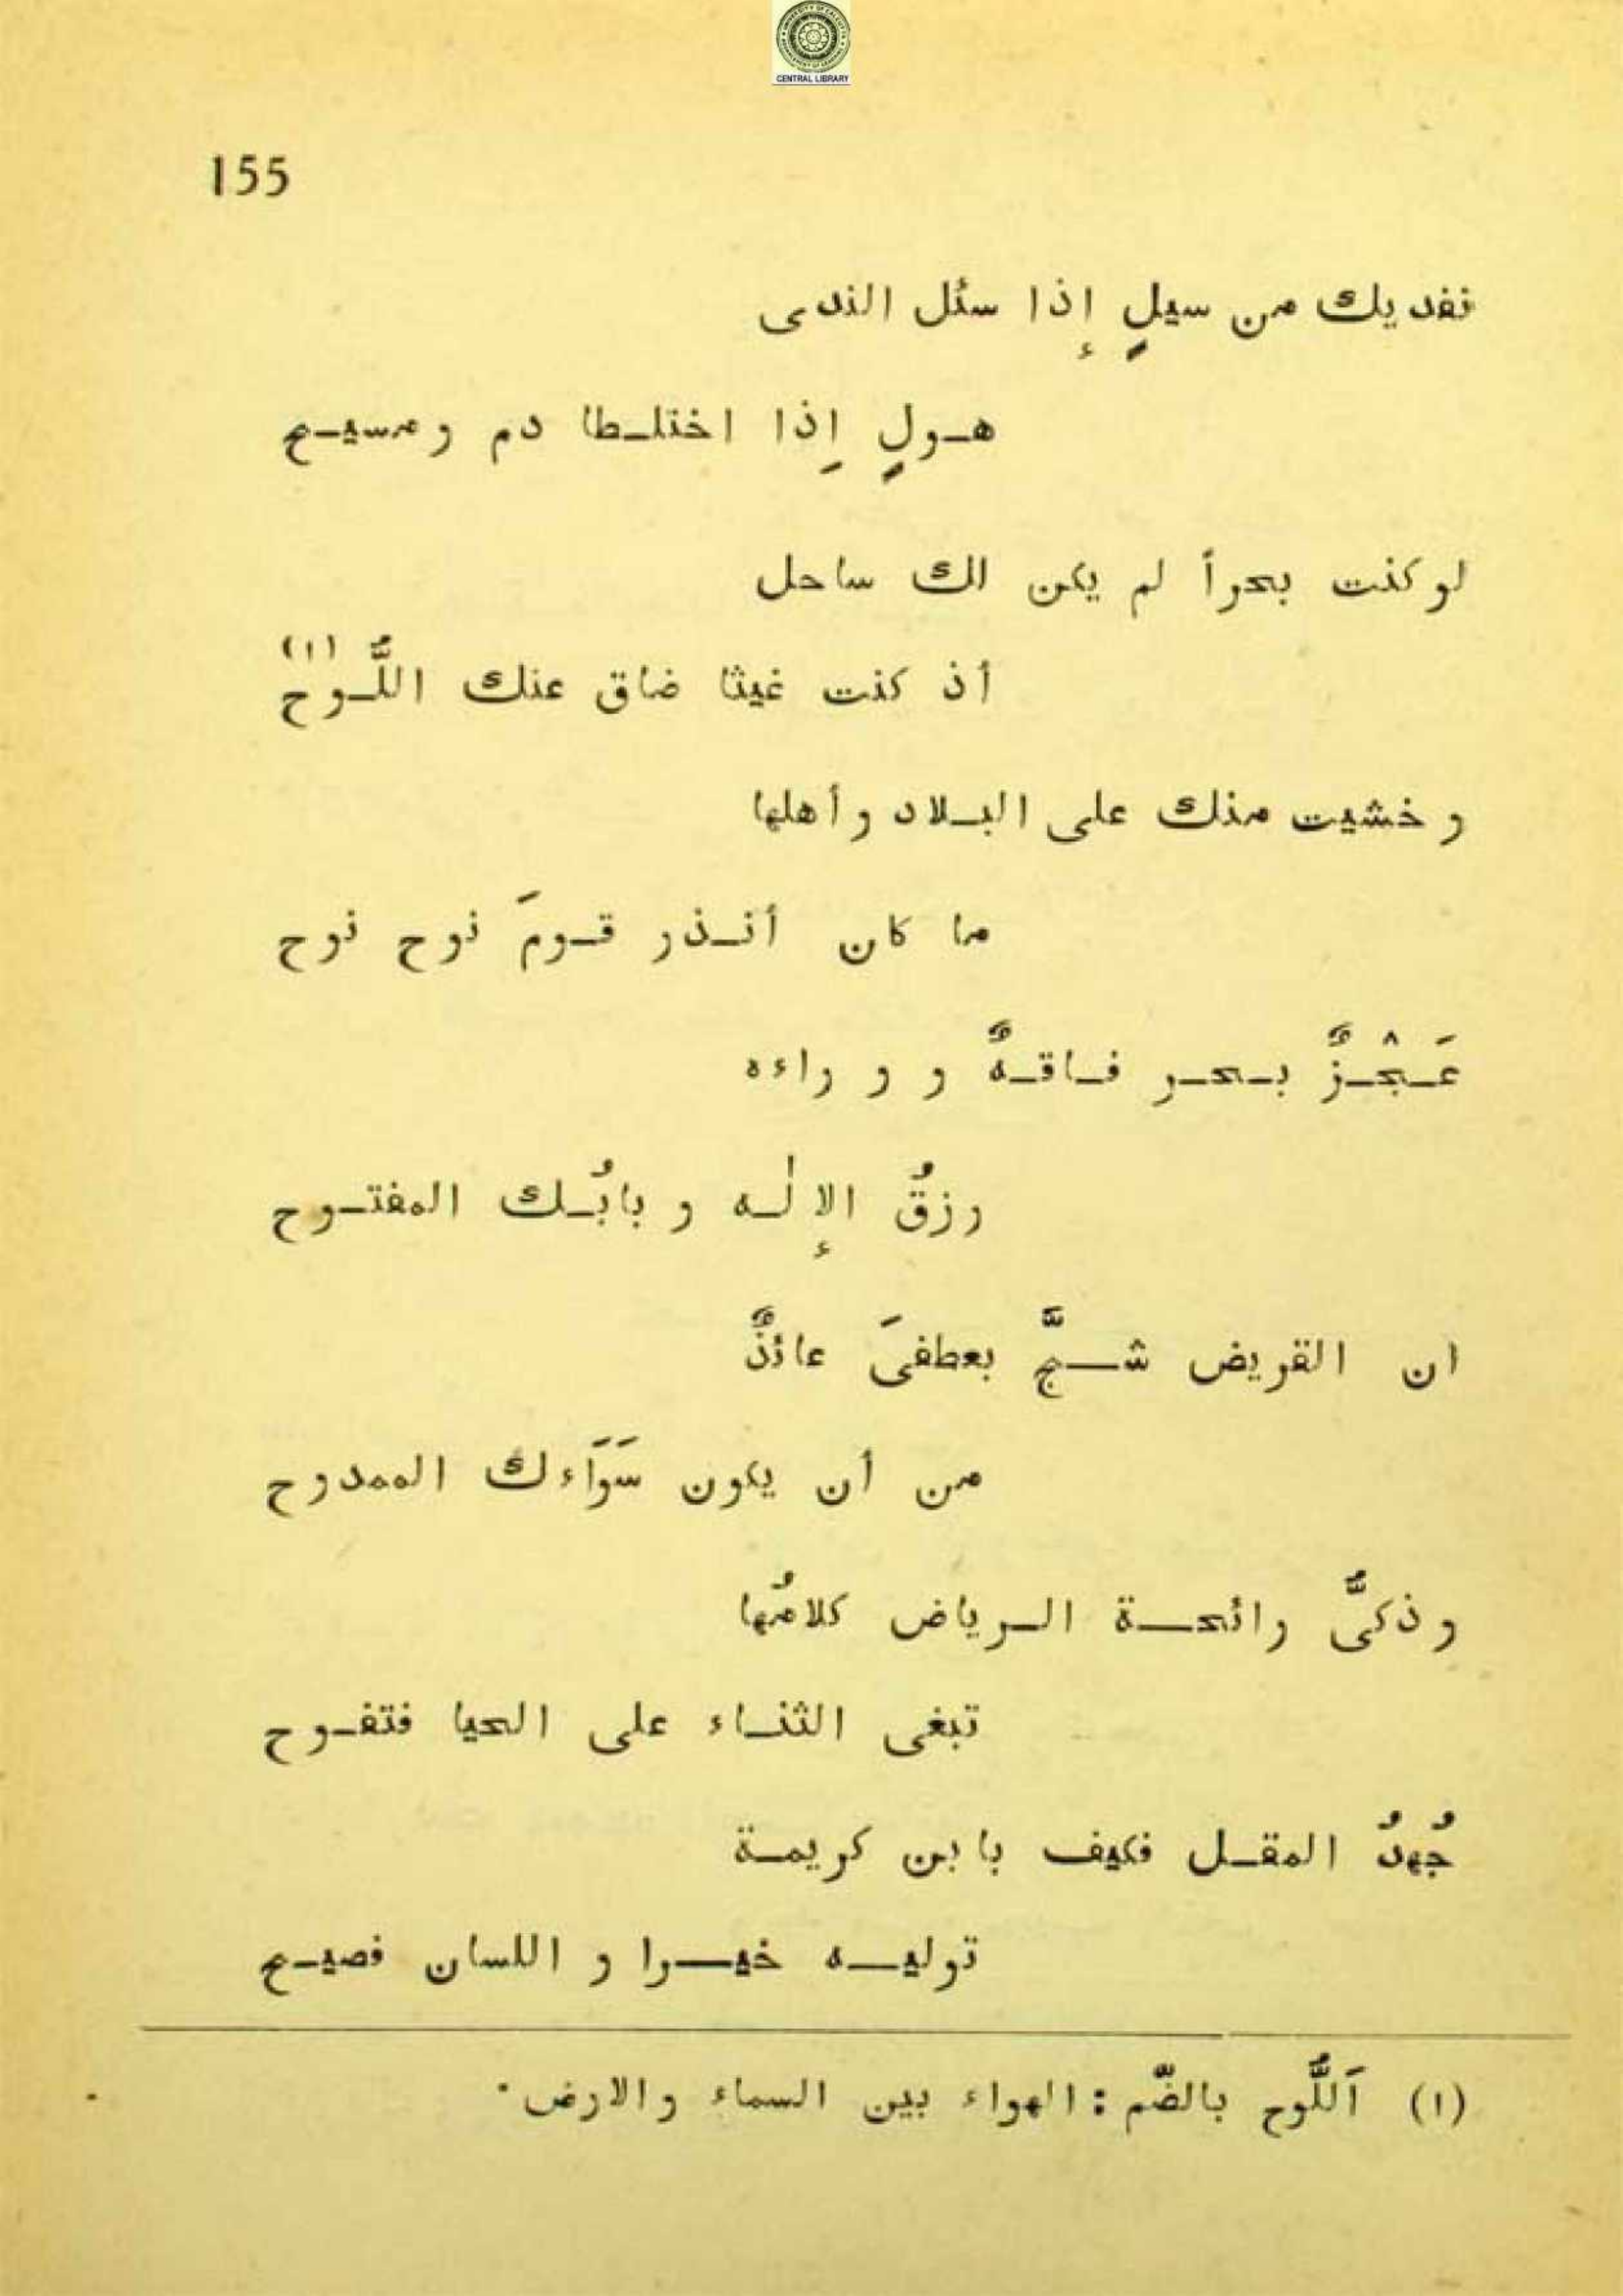 UNIVERSITY OF CALCUTTA
CENTRAL LIBRARY
155
نفديك من سيلٍ إذا سئل الندى
هـولٍ إِذا اختلـطا دم ومسيـح
لو كنت بحراً لم يكن لك ساحل
أذ كنت غيثا ضاق عنك اللُّـوح (١)
وخشيت منك على البـلاد وأهلها
ما كان أنـذر قـومَ نوح نوح
عَـجْـزٌ بـحـر فـاقـهٌ و وراءه
رزقُ الإلٰـه و بابُـك المفتـوح
ان القريض شـجٌّ بعطفىَ عائذٌ
من أن يكون سَوَاءك الممدوح
وذكىُّ رائحـة الـرياض كلامُها
تبغى الثنـاء على الحيا فتفـوح
جُهدُ المقـل فكيف بابن كريمـة
توليـه خيـرا و اللسان فصيـح
(١) اَللُّوح بالضّم : الهواء بين السماء والارض ·